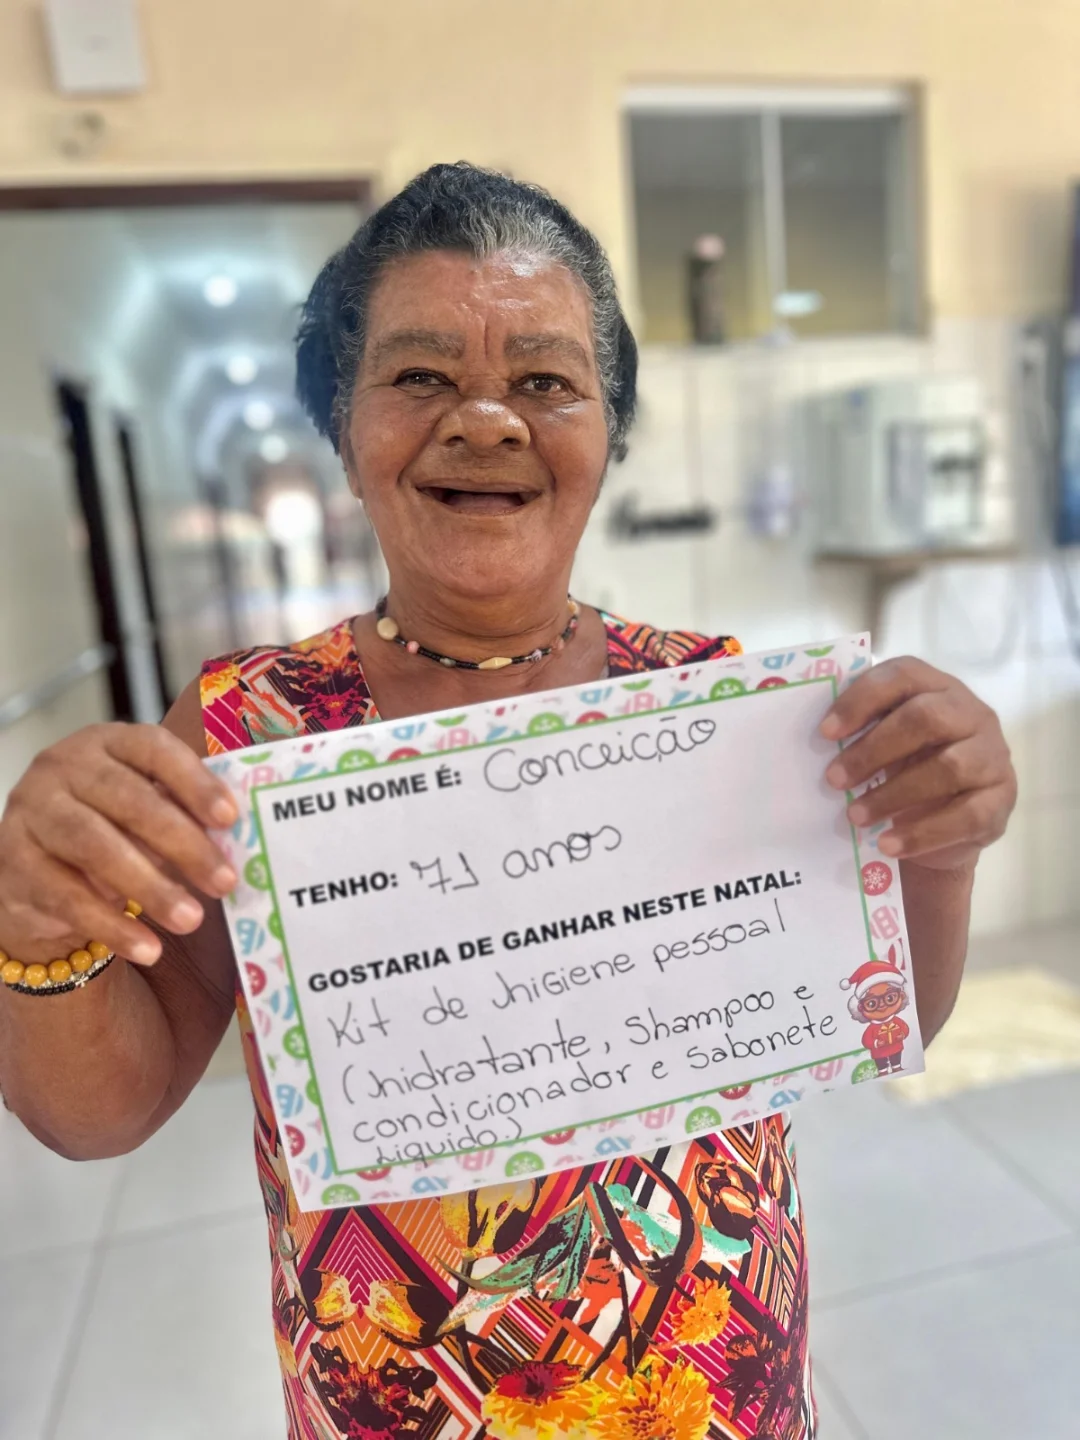 MEU NOME É: Conceição
TENHO: 71 anos
GOSTARIA DE GANHAR NESTE NATAL:
Kit de higiene pessoal
(hidratante, Shampoo e
condicionador e Sabonete
Liquido.)